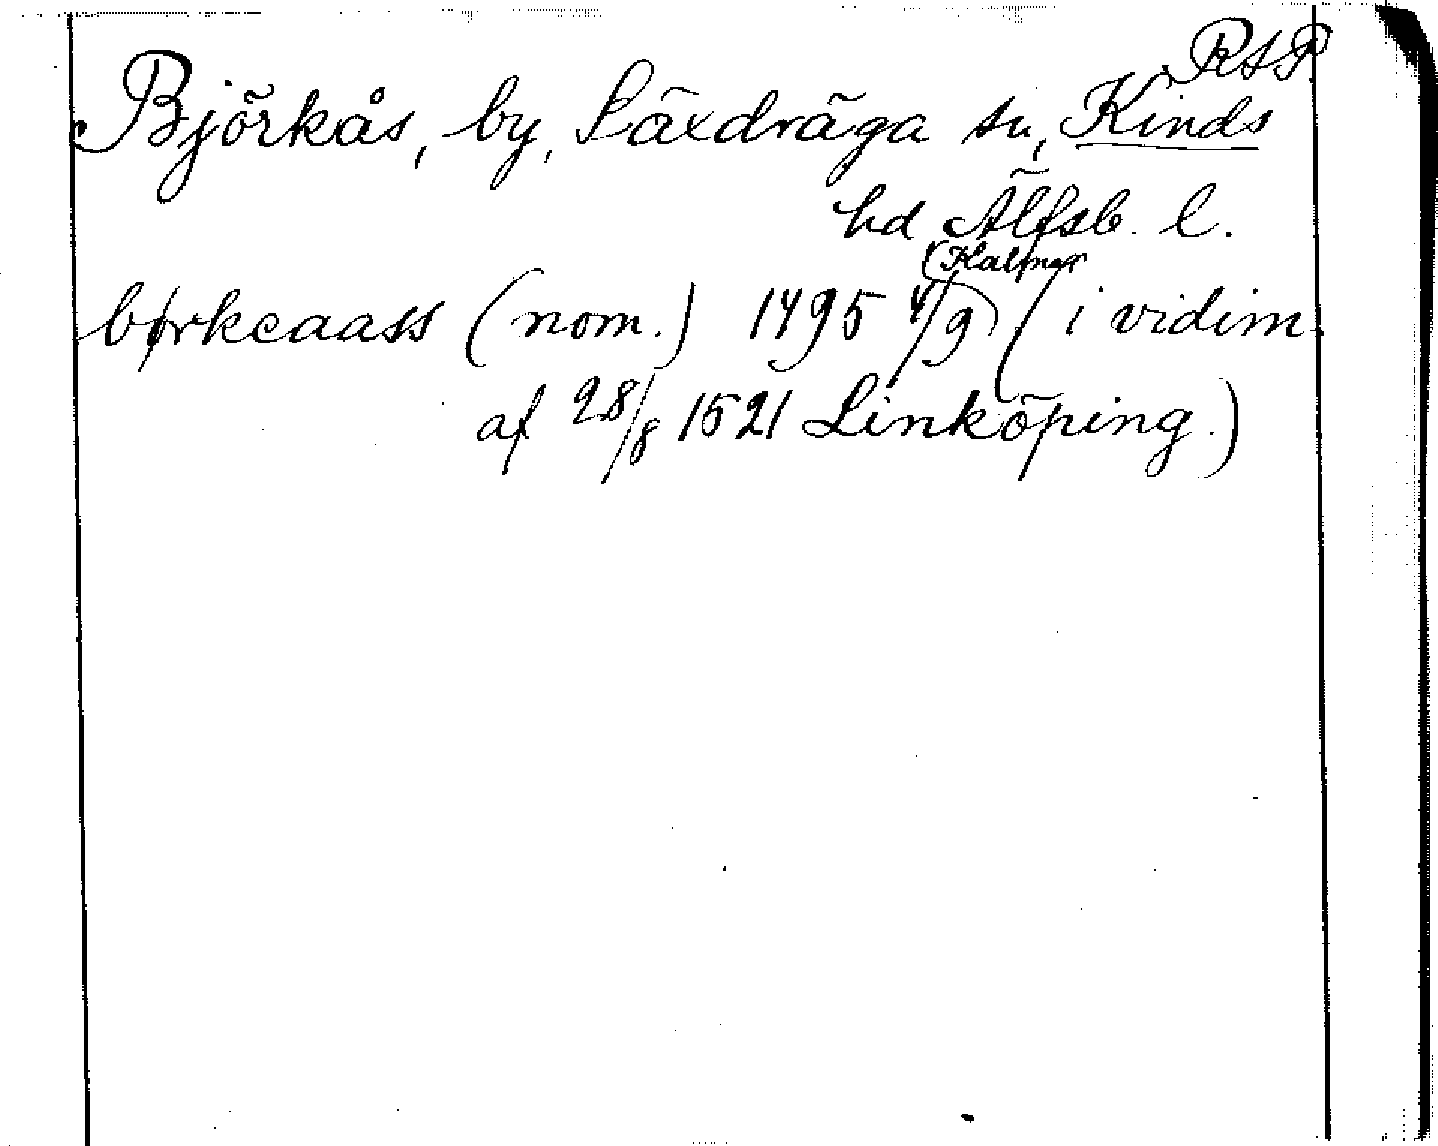 RAP
Björkås, by, Säxdräga sn, Kinds
hd Älfsb. l.
(Kalmar
børkeaass (nom.) 1495 4/9) (i vidim.
af 28/8 1521 Linköping.)